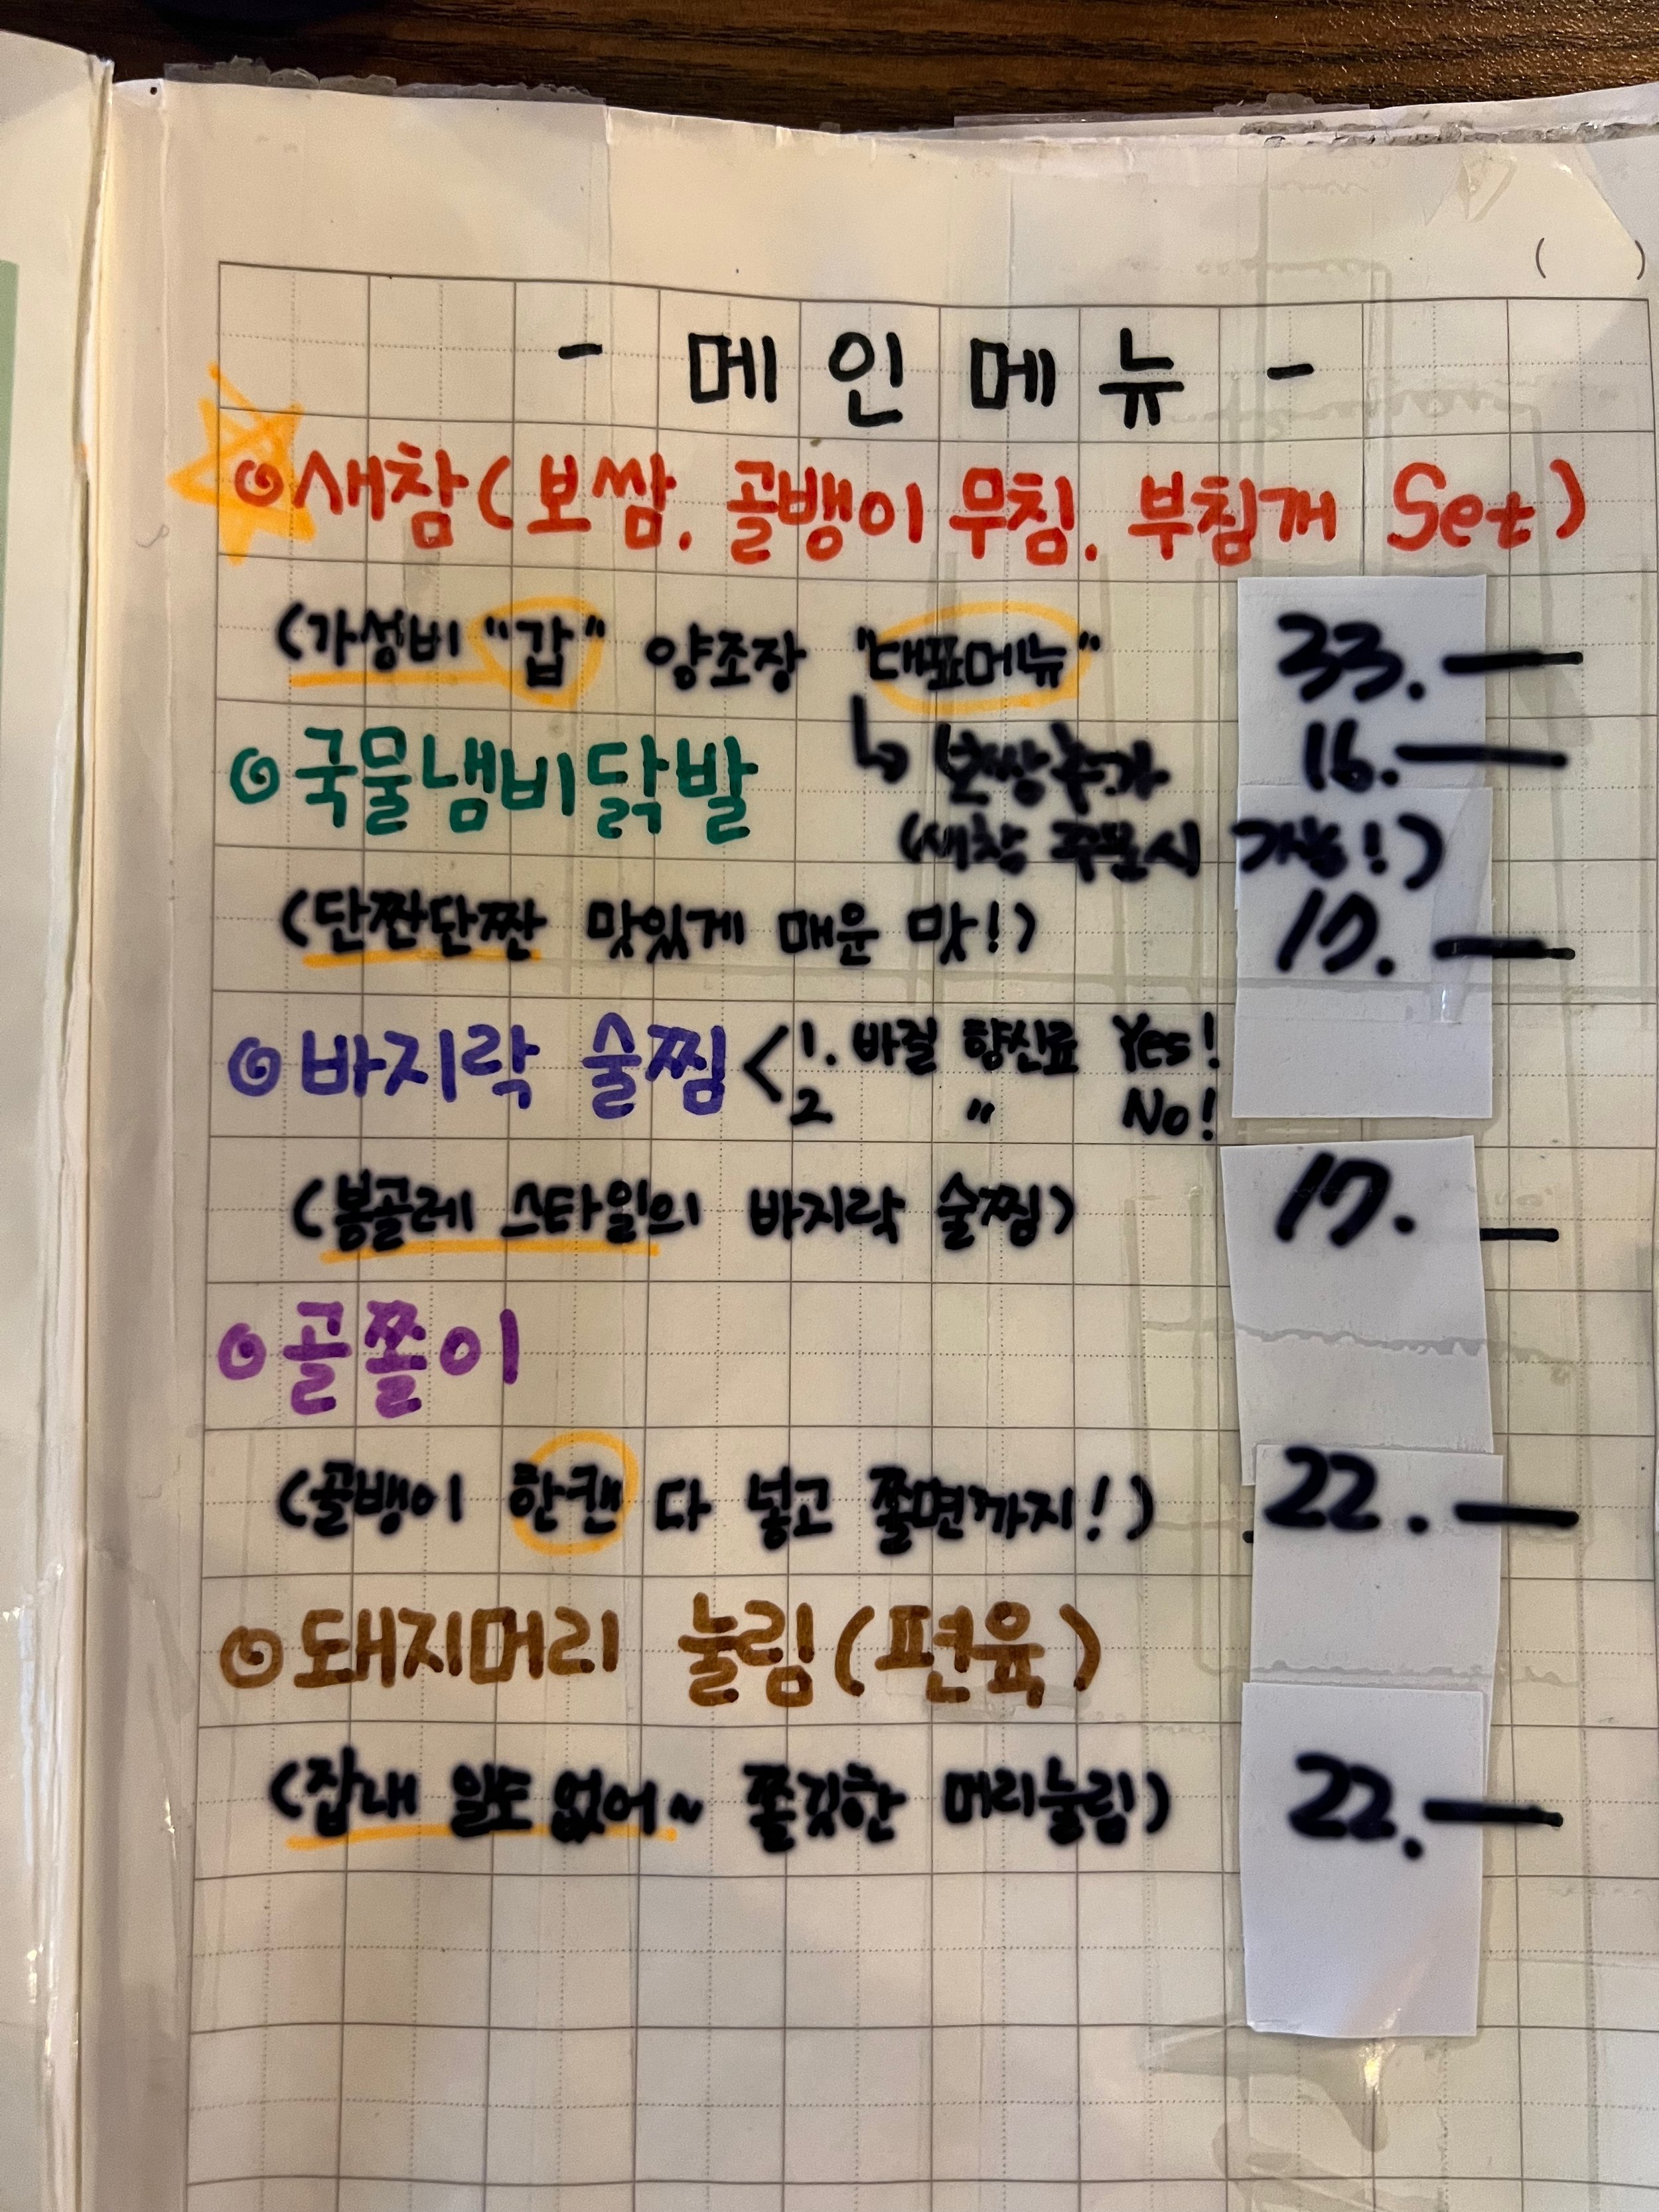 - 메인메뉴 -
◎새참(보쌈. 골뱅이 무침. 부침개 Set)
(가성비 "갑" 양조장 "대표메뉴" 33.—
↳ 보쌈추가 16.—
◎국물냄비닭발
(새참 주문시 가능!)
(단짠단짠 맛있게 매운 맛!) 17.—
◎바지락 술찜 < 1. 바질 향신료 Yes!
2 〃 No!
(봉골레 스타일의 바지락 술찜) 17. —
◎골쫄이
(골뱅이 한캔 다 넣고 쫄면까지!) 22.—
◎돼지머리 눌림(편육)
(잡내 일도 없어~ 쫄깃한 머리눌림) 22.—